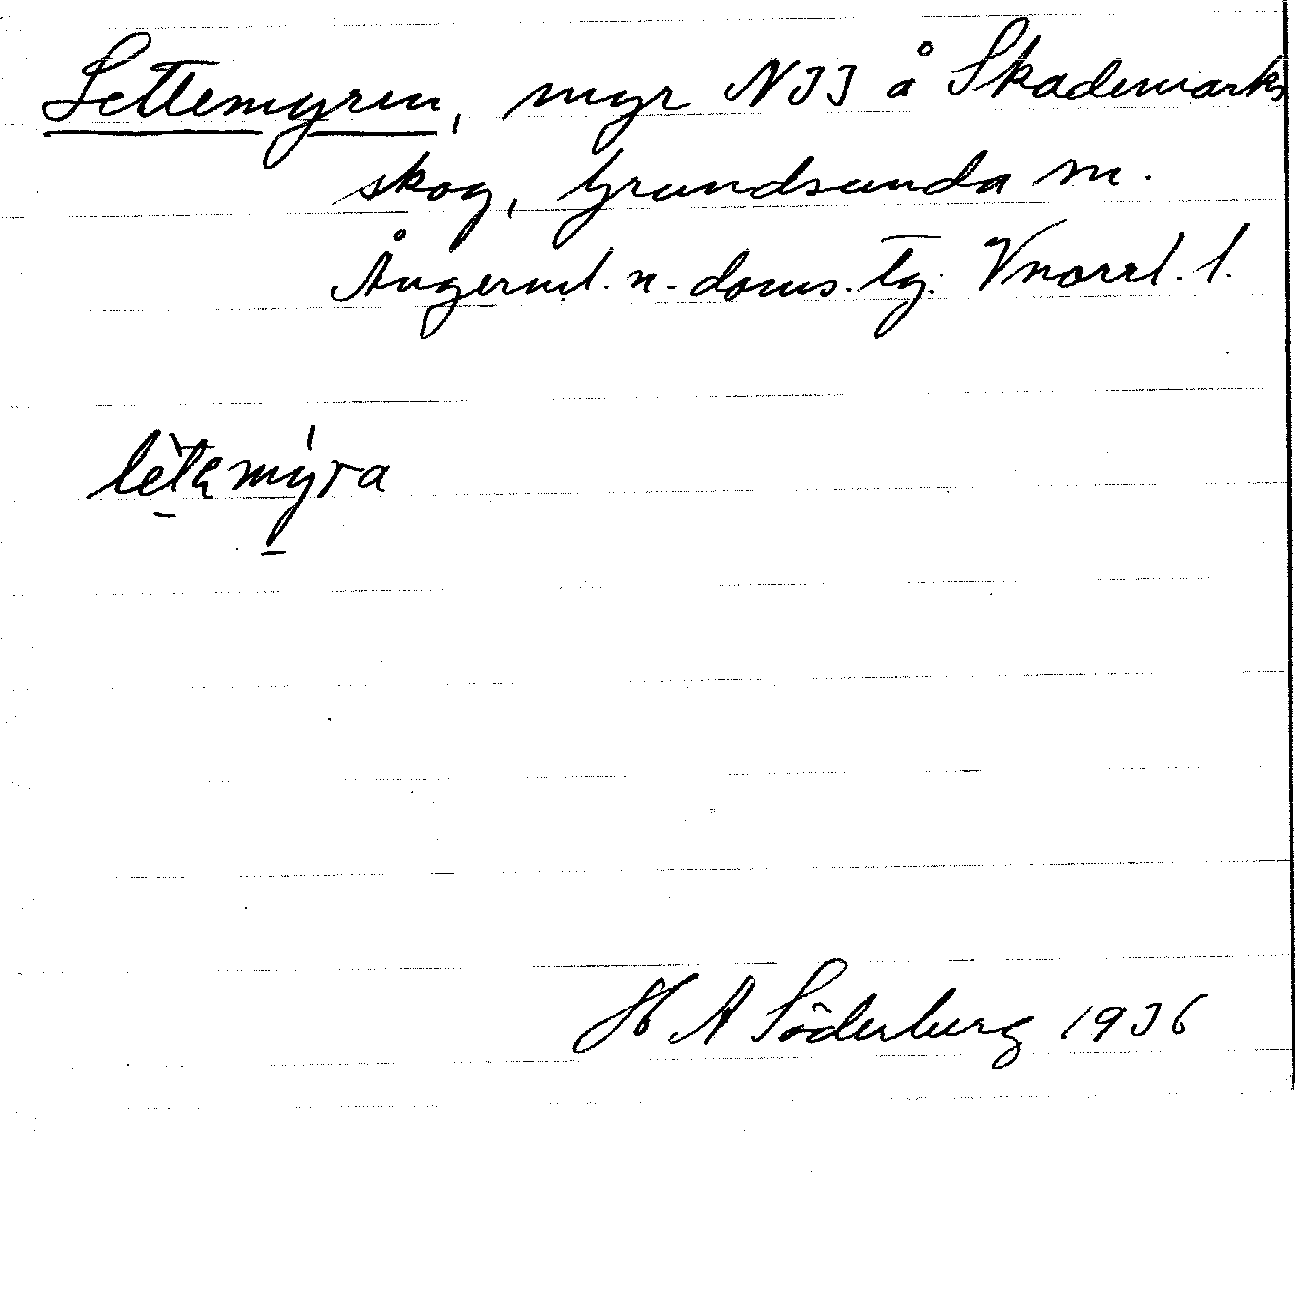 Lettemyren, myr N33 å Skademarks
skog, Grundsunda sn.
Ångerml. n. doms. tg. Vnorrl. l.
lètamýra
H A Söderberg 1936